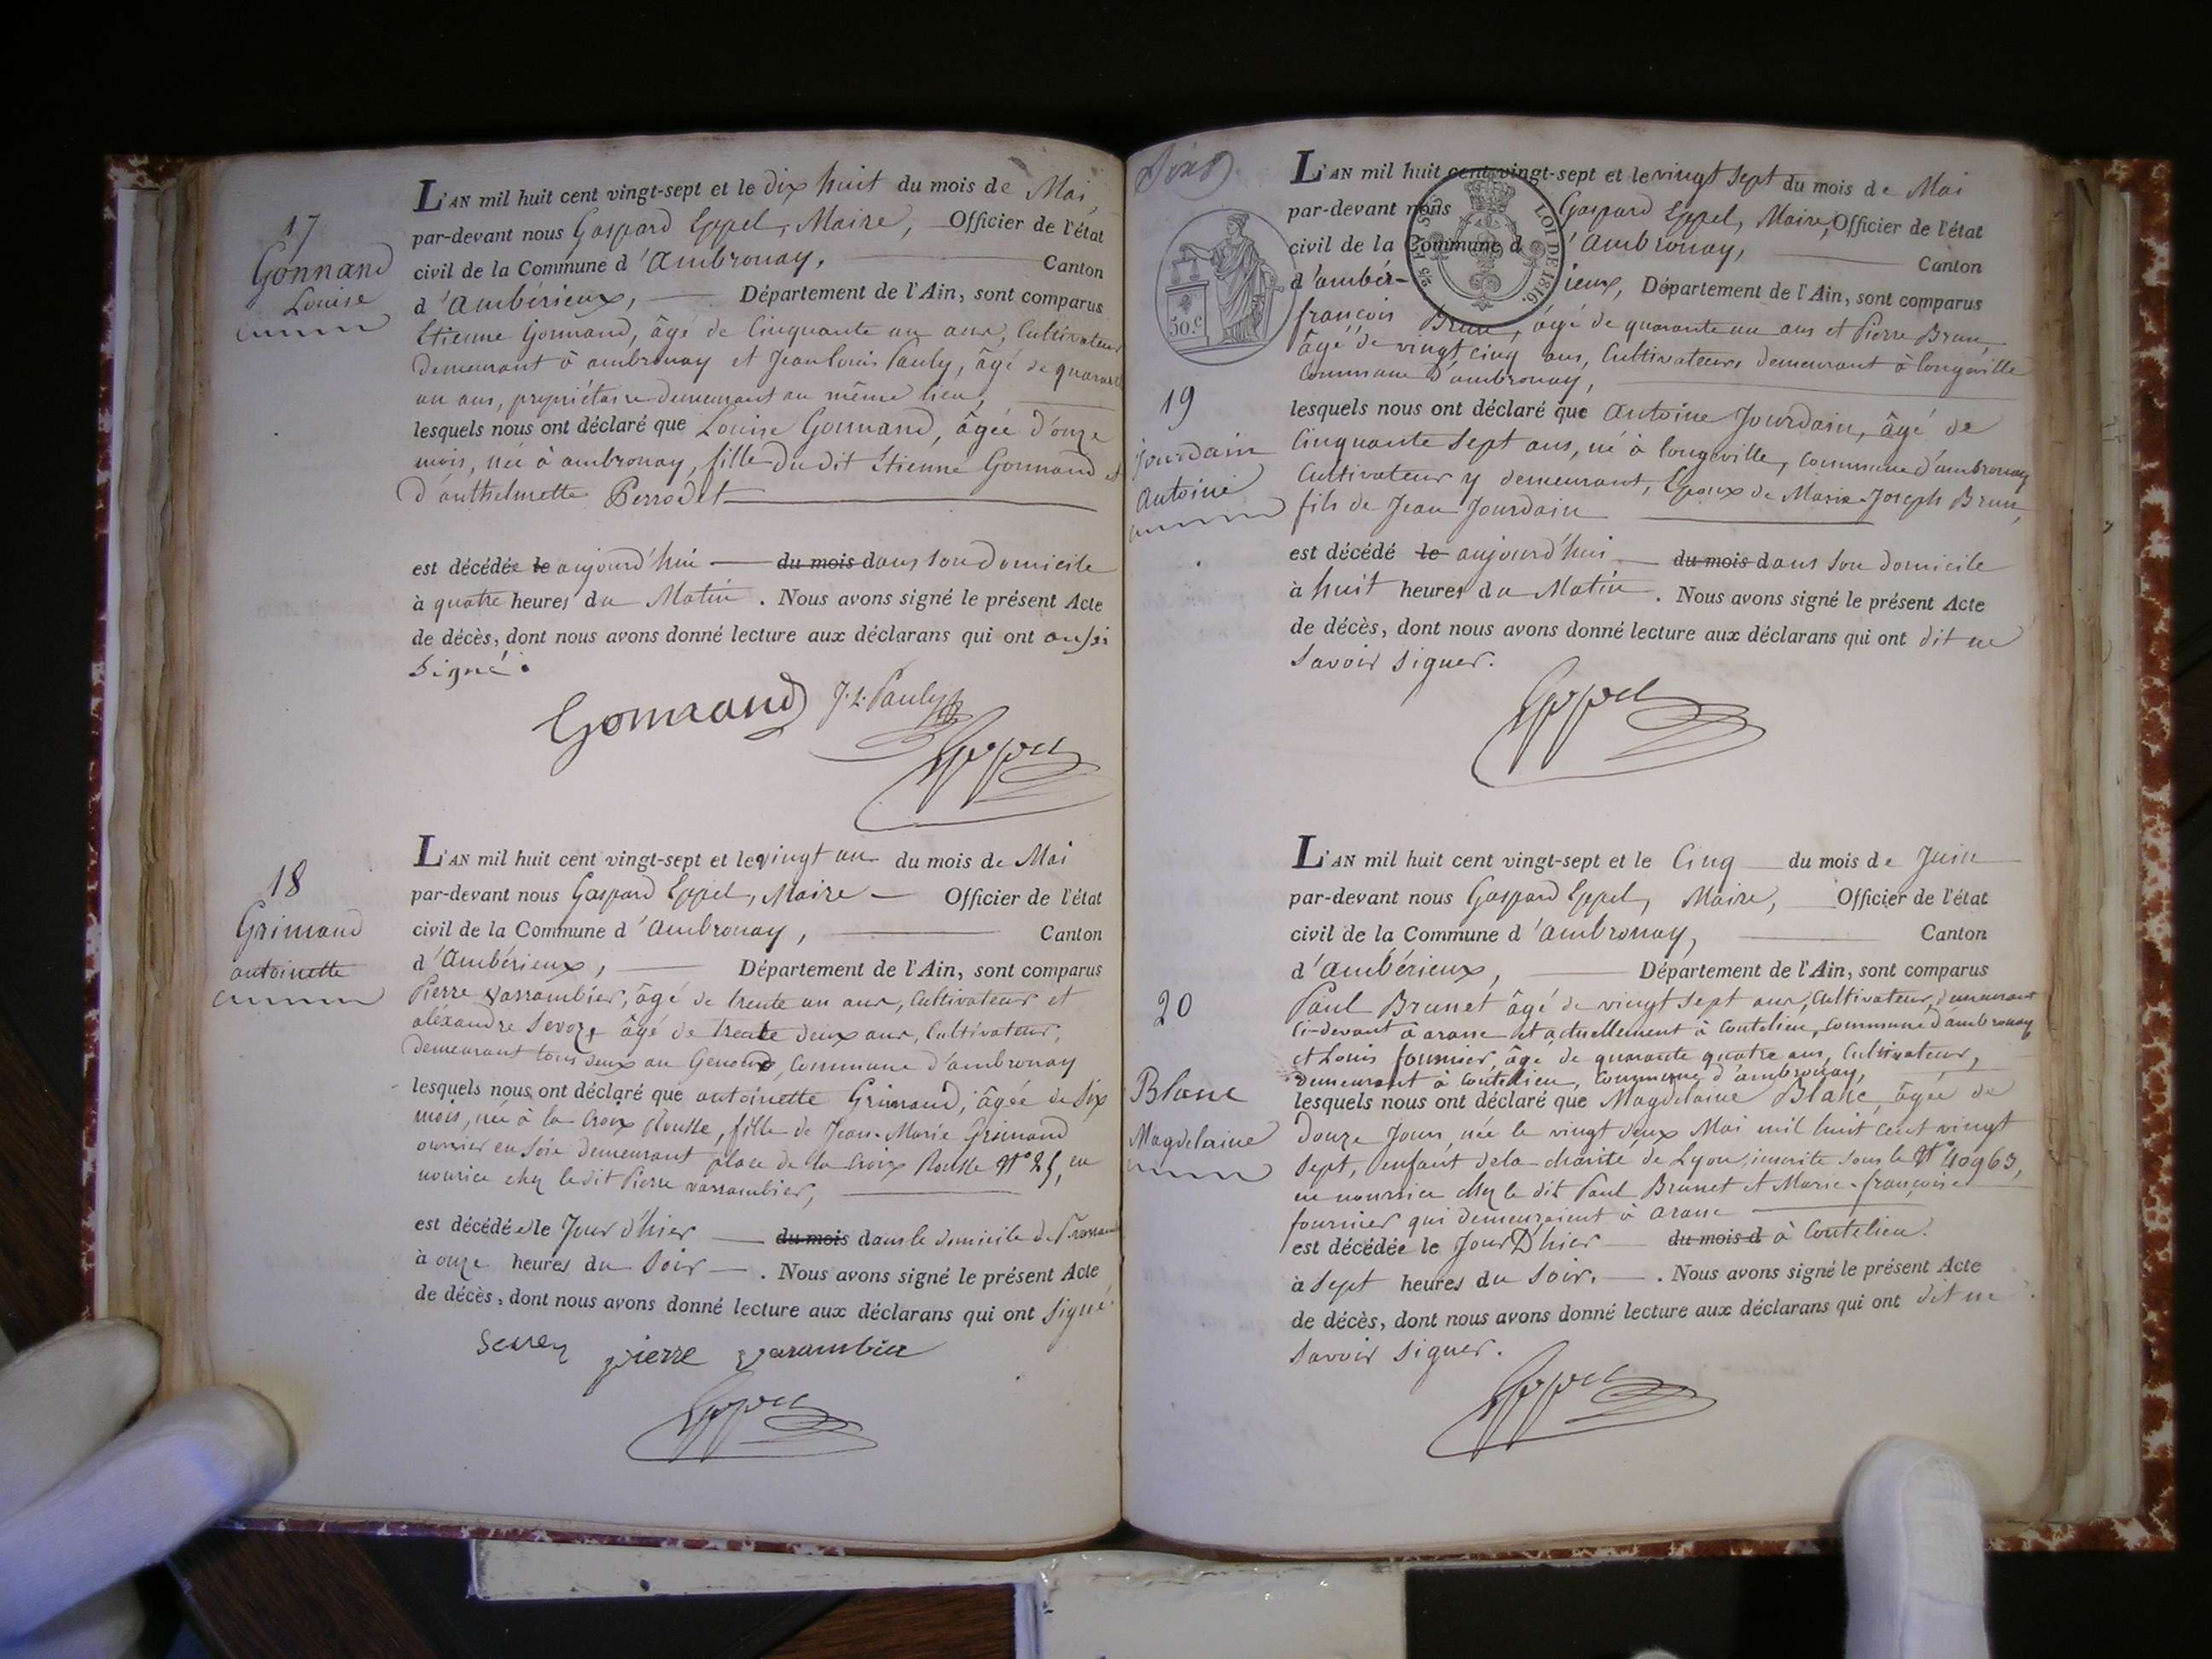 17
Gonnand
Louise
L'AN mil huit cent vingt-sept et le dix huit du mois de Mai,
par-devant nous Gaspard Eppel, Maire, Officier de l'état
civil de la Commune d'Ambronay, Canton
d'Ambérieux, Département de l'Ain, sont comparus
Etienne Gonnand, âgé de Cinquante un ans, Cultivateur
demeurant à ambronay et Jean Louis Pauly, âgé de quarante
un ans, propriétaire demeurant au même lieu,
lesquels nous ont déclaré que Louise Gonnand, âgée d'onze
mois, née à ambronay, fille du dit Etienne Gonnand et
d'anthelmette Perrodet
est décédée le aujourd'hui du mois dans son domicile
à quatre heures du Matin. Nous avons signé le présent Acte
de décès, dont nous avons donné lecture aux déclarans qui ont aussi
signé.
Gonnand J. L. Pauly
Eppel
18
Grimand
antoinette
L'AN mil huit cent vingt-sept et le vingt un du mois de Mai
par-devant nous Gaspard Eppel, Maire Officier de l'état
civil de la Commune d'Ambronay, Canton
d'Ambérieux, Département de l'Ain, sont comparus
Pierre Varrambier, âgé de trente un ans, Cultivateur et
alexandre âgé de trente deux ans, Cultivateur,
demeurant tous deux au Genoud, Commune d'ambronay
lesquels nous ont déclaré que antoinette Grimand, âgée de Six
mois, née à la Croix Rousse, fille de Jean-Marie Grimand
ouvrier en Soie demeurant place de la Croix Rousse N° 25, en
nourice chez le dit Pierre varrambier,
est décédée le Jour d'hier du mois dans le domicile de P.
à onze heures du Soir. Nous avons signé le présent Acte
de décès, dont nous avons donné lecture aux déclarans qui ont signé.
pierre varambier
Eppel
50.C
LOI DE 1816.
19
Jourdain
Antoine
L'AN mil huit cent vingt-sept et le vingt sept du mois de Mai
par-devant nous Gaspard Eppel, Maire, Officier de l'état
civil de la Commune d'Ambronay, Canton
d'ambérieux, Département de l'Ain, sont comparus
françois Brun, âgé de quarante un ans et Pierre Brun,
âgé de vingt cinq ans, Cultivateurs demeurant à longeville
Commune d'ambronay,
lesquels nous ont déclaré que Antoine Jourdain, âgé de
Cinquante sept ans, né à longeville, commune d'ambronay
Cultivateur y demeurant, Epoux de Marie-Joseph Brun,
fils de Jean Jourdain
est décédé le aujourd'hui du mois dans son domicile
à huit heures du Matin. Nous avons signé le présent Acte
de décès, dont nous avons donné lecture aux déclarans qui ont dit ne
savoir signer.
Eppel
20
Blanc
Magdelaine
L'AN mil huit cent vingt-sept et le Cinq du mois de Juin
par-devant nous Gaspard Eppel, Maire, Officier de l'état
civil de la Commune d'Ambronay, Canton
d'Ambérieux, Département de l'Ain, sont comparus
Paul Brunet âgé de vingt sept ans, Cultivateur, demeurant
Ci-devant à arane et actuellement à Coutelieu, commune d'ambronay
et Louis fournier, âgé de quarante quatre ans, Cultivateur,
demeurant à Coutelieu, Commune d'ambronay,
lesquels nous ont déclaré que Magdelaine Blanc, âgée de
douze Jours, née le vingt deux Mai mil huit cent vingt
sept, enfant de la charité de Lyon, inscrite sous le N° 40963,
en nourrice chez le dit Paul Brunet et Marie-françoise
fournier qui demeuraient à arane
est décédée le Jour D'hier du mois d à Coutelieu.
à sept heures du Soir. Nous avons signé le présent Acte
de décès, dont nous avons donné lecture aux déclarans qui ont dit ne
savoir signer.
Eppel